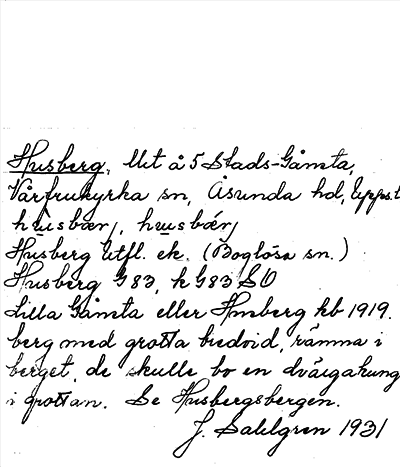 Husberg, Utt å 5 Stads-Gåmsta,
Vårfrukyrka sn, Åsunda hd, Upps. l
husbær/, husbǽr/
Husberg Utfl. ek. (Boglösa sn.)
Husberg G83, k G83 SO
Lilla Gåmsta eller Husberg kb 1919.
berg med grotta bredvid, rämna i
berget, de skulle bo en dvärgakung
i grottan. Se Husbergsbergen.
J. Sahlgren 1931